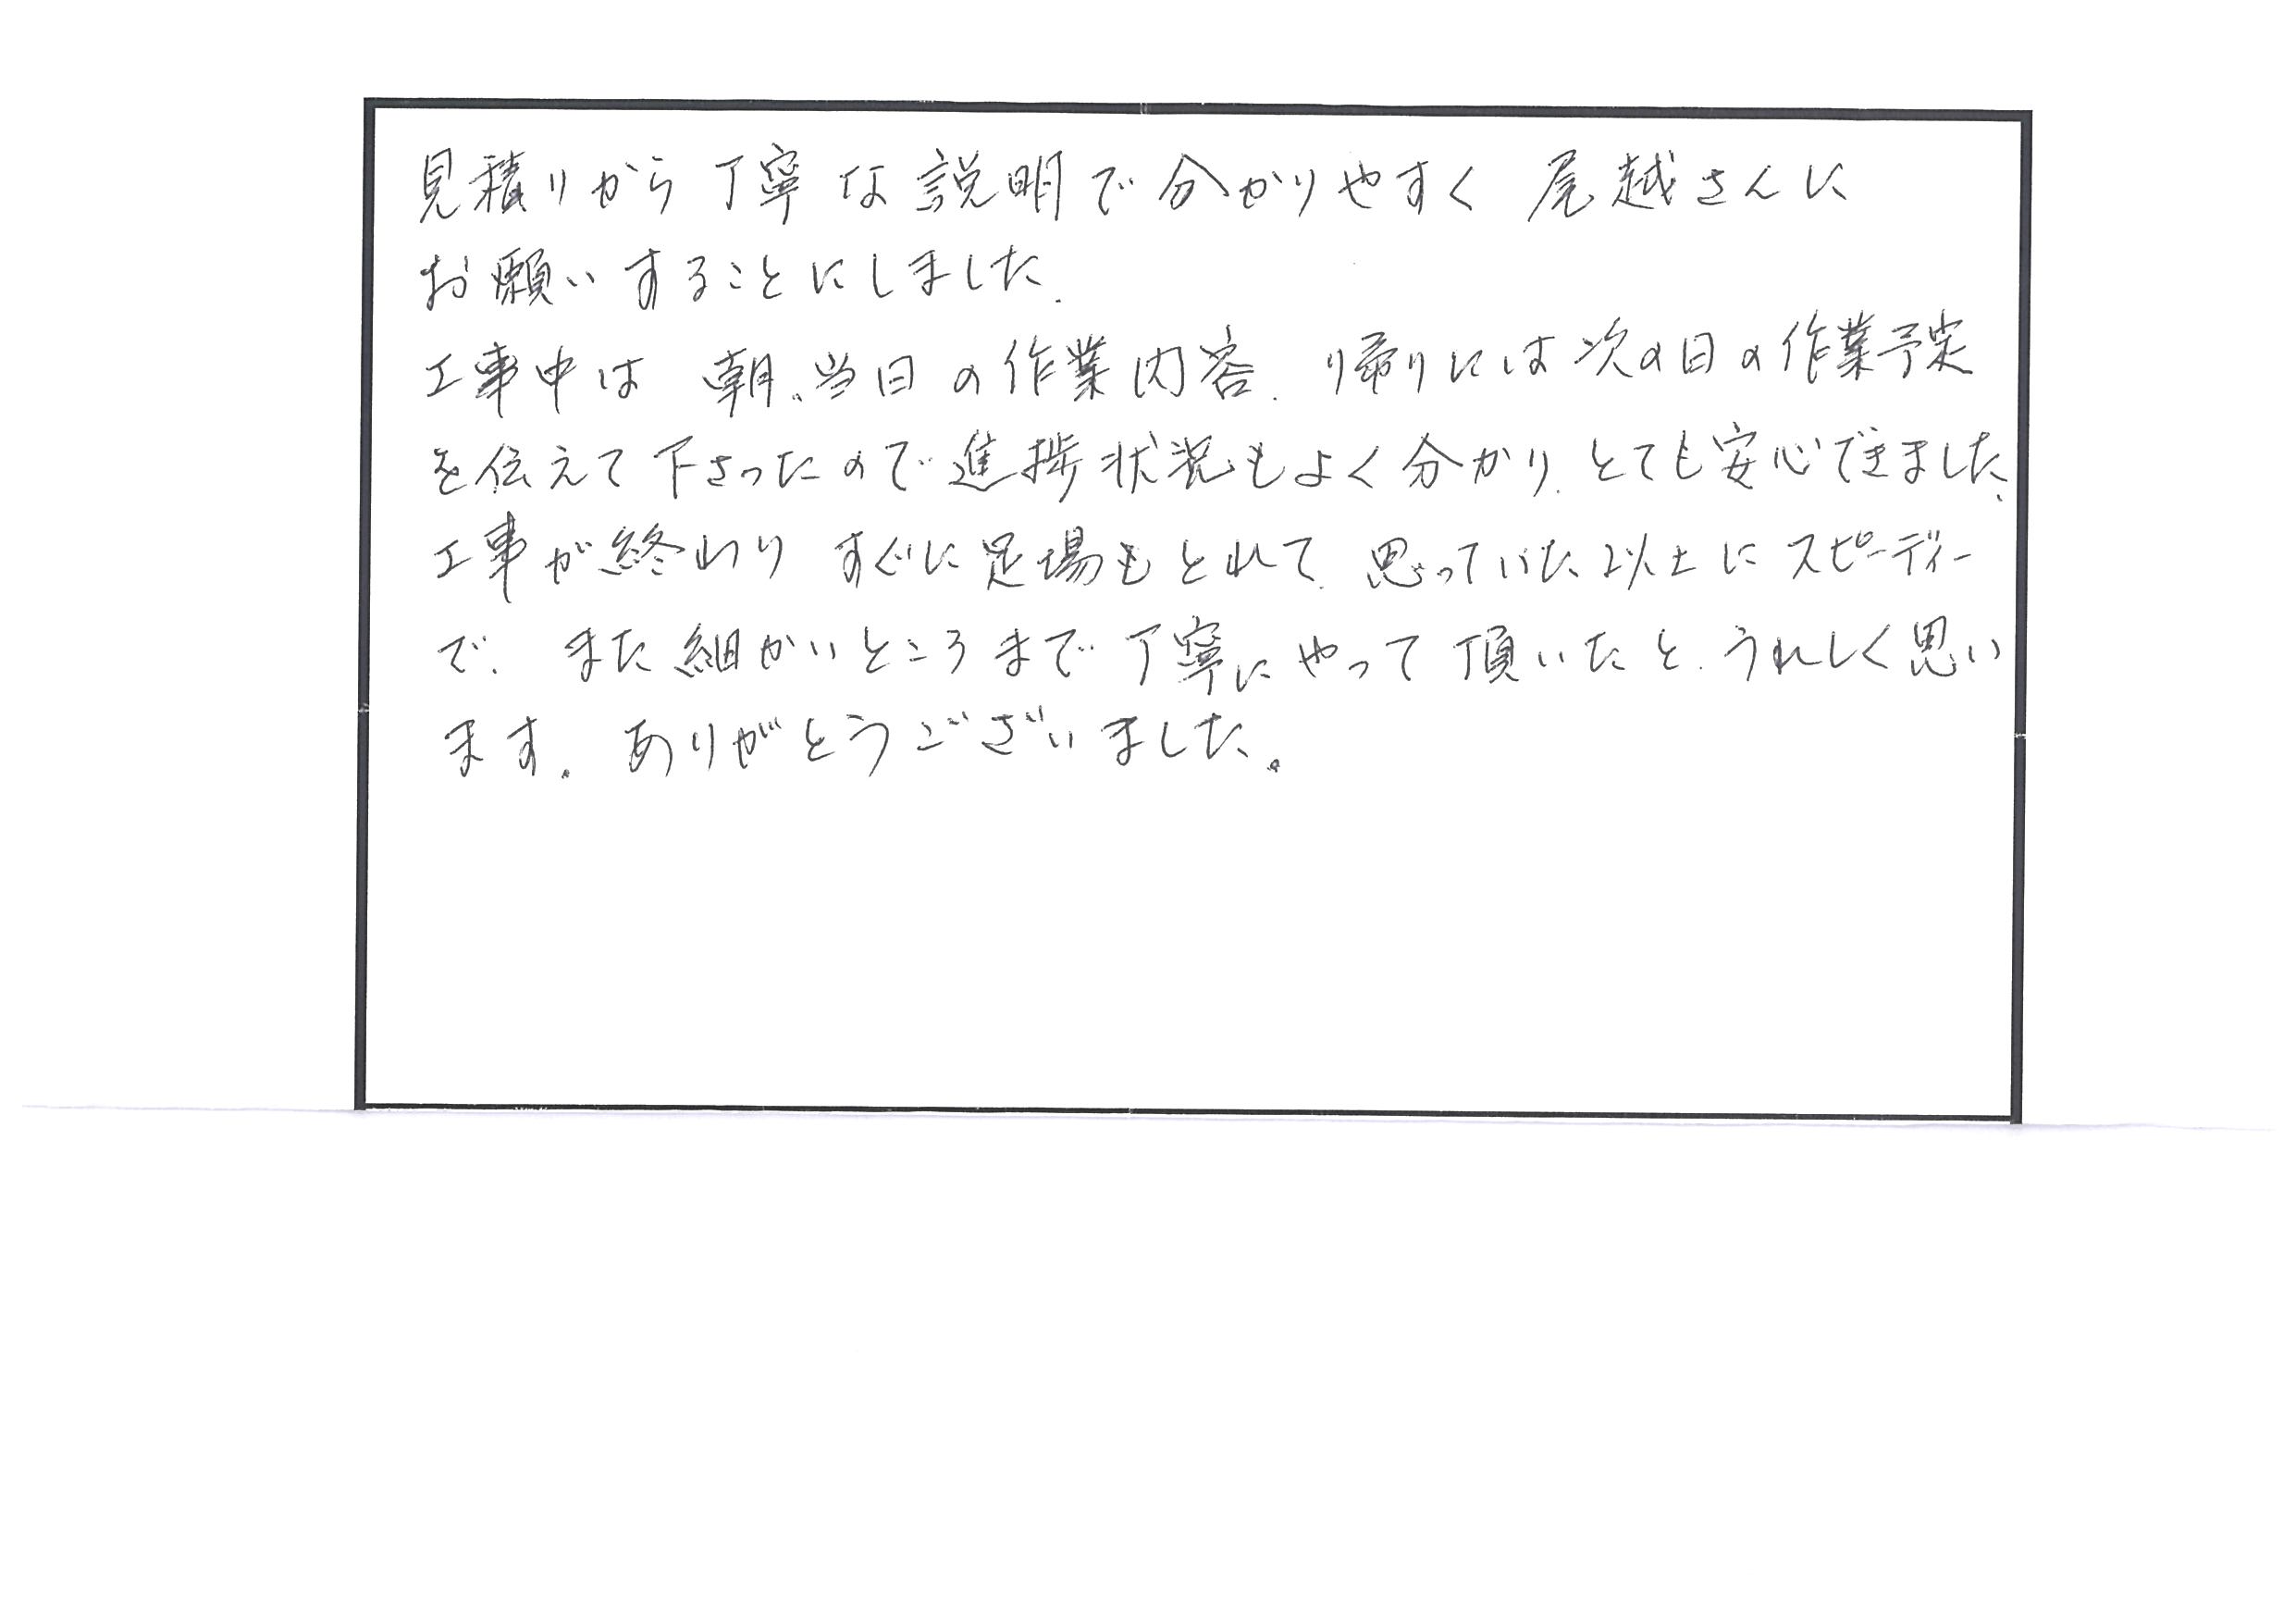 見積りから丁寧な説明で分かりやすく尾越さんに
お願いすることにしました。
工事中は 朝、当日の作業内容、帰りには次の日の作業予定
を伝えて下さったので進捗状況もよく分かり、とても安心できました。
工事が終わり すぐに足場もとれて、思っていた以上にスピーディー
で、また細かいところまで丁寧にやって頂いたと、うれしく思い
ます。ありがとうございました。